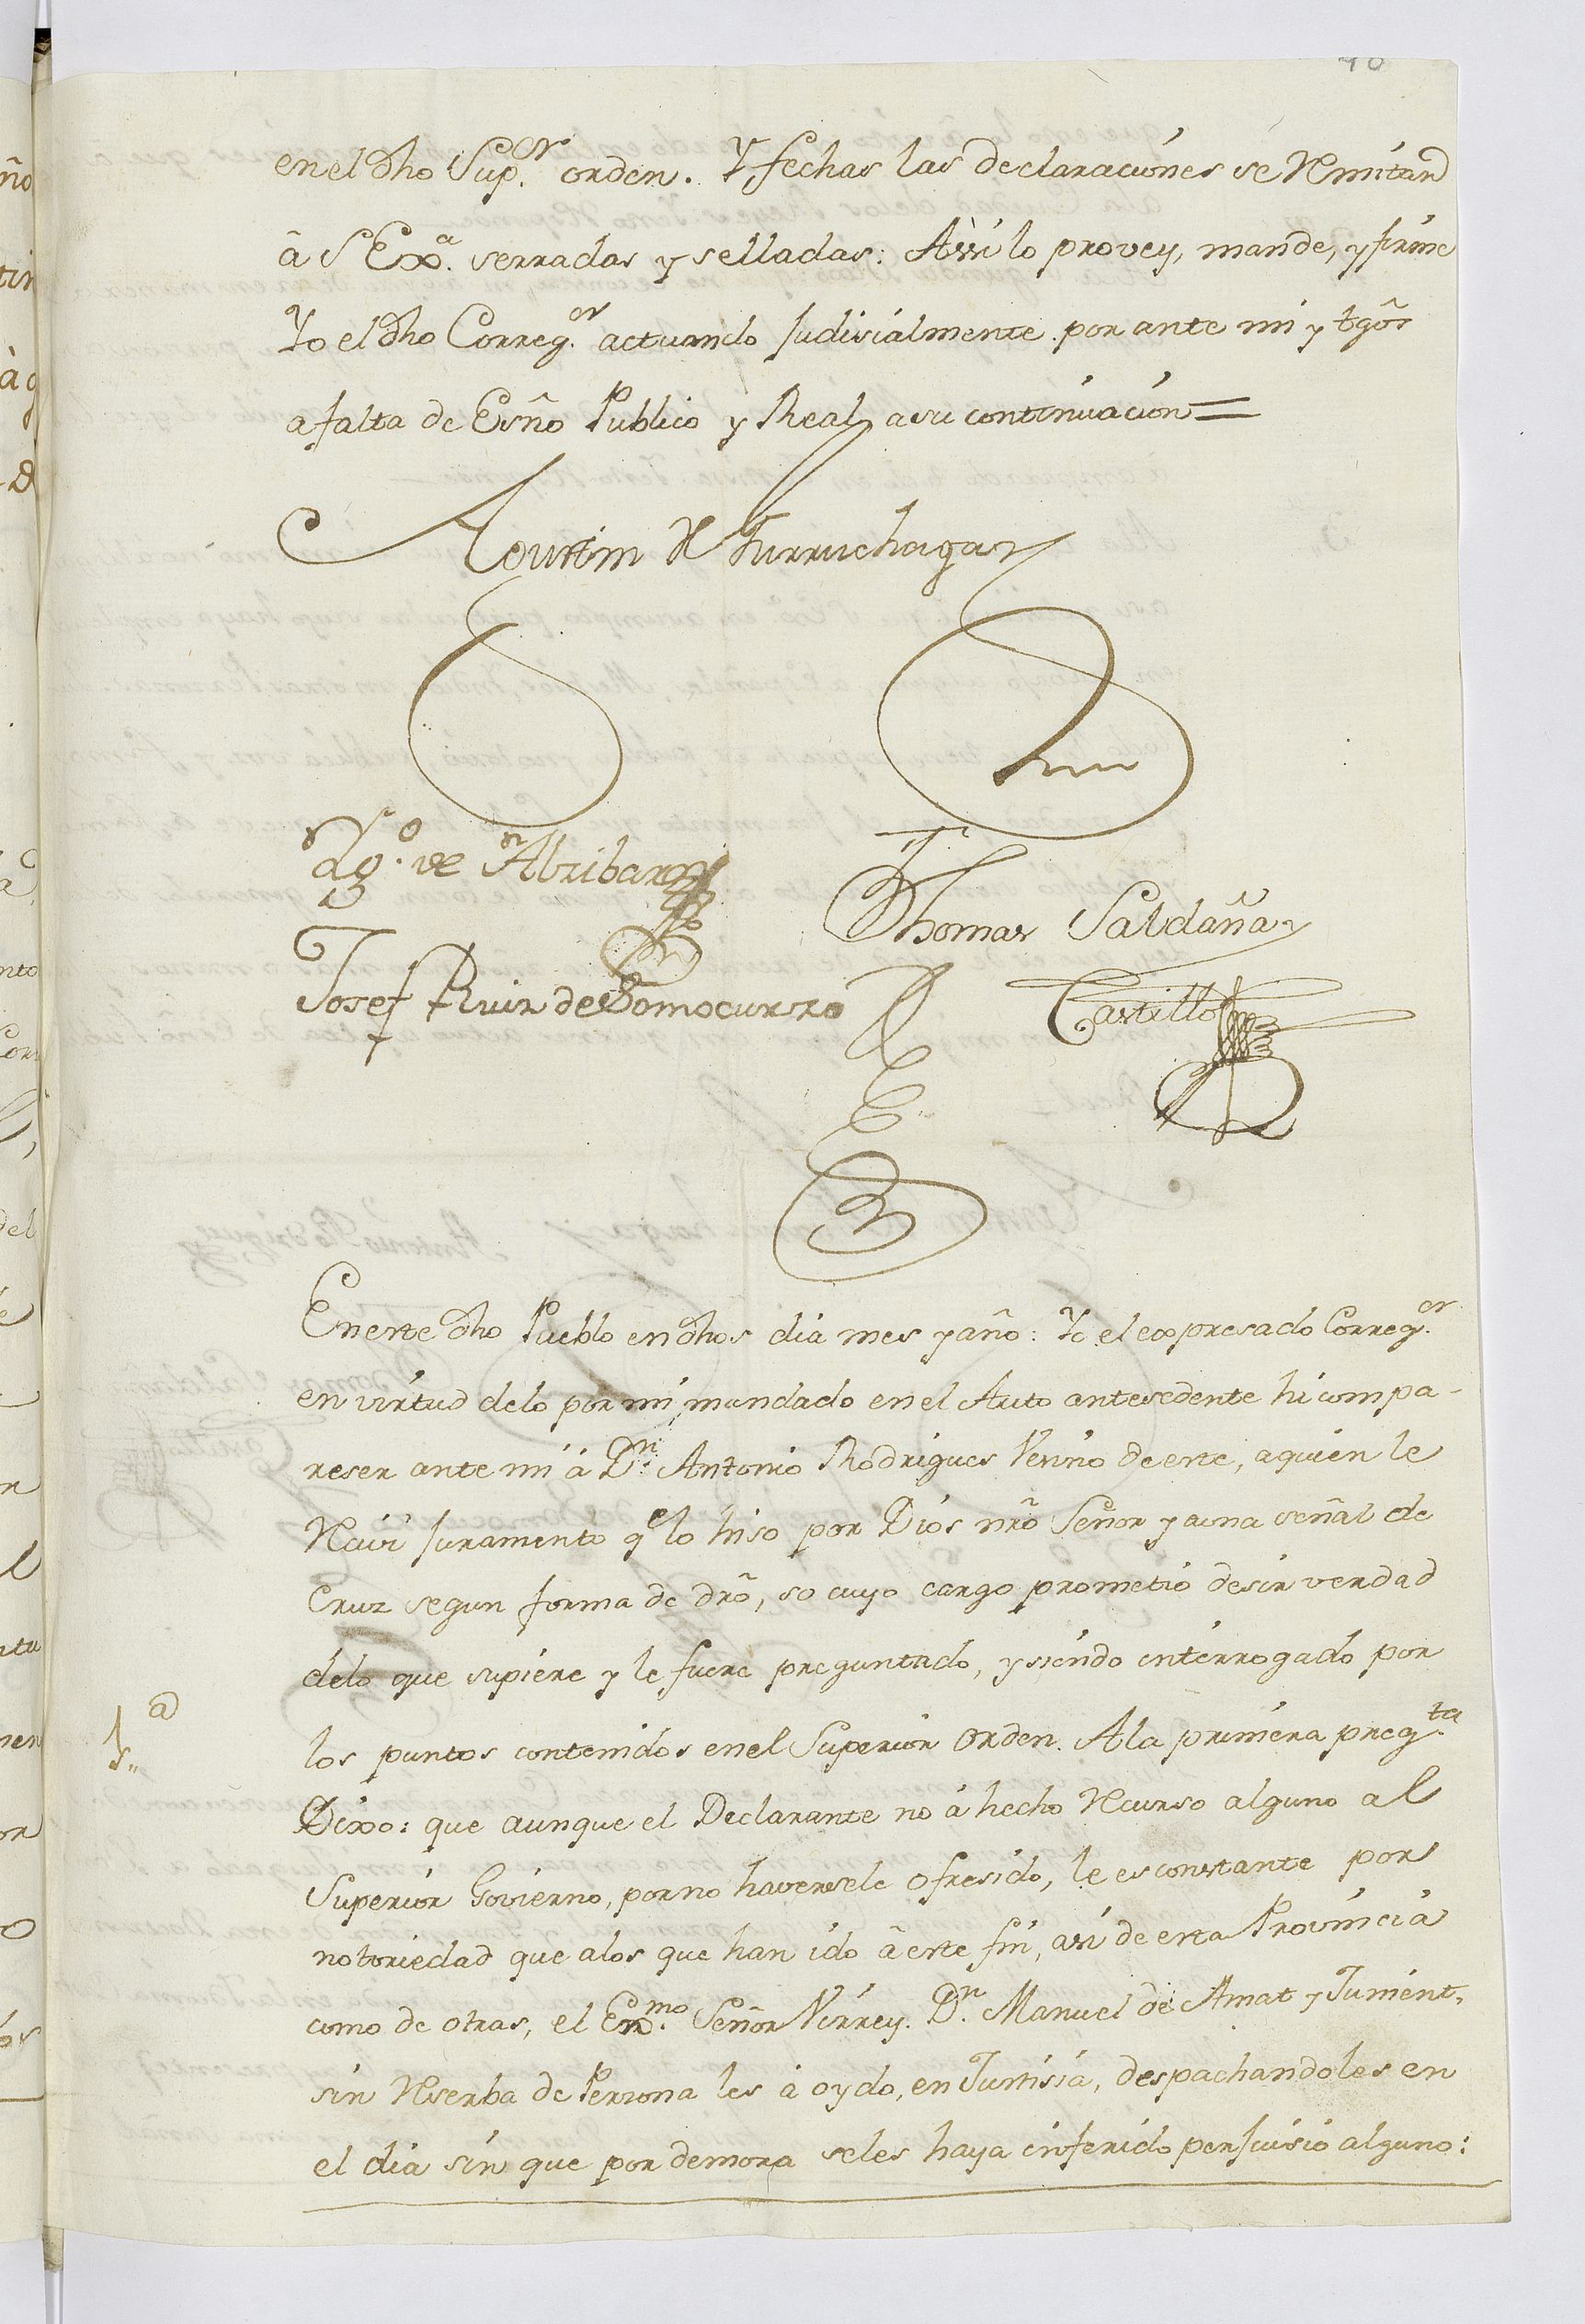 en el dho Sup.or orden. Y fechas las declaraciónes se Remitan
â S Exa. serradas y selladas: Assi lo provey, mande, y firme
Yo el dho Correg.or actuando Judisialmente por ante mi y tgõs
a falta de Esño Publico y Real, a su continuación=
Agustin de Jurruchaga
Dgo. de Abribar
Thomas Saldaña y
Josef Ruiz de Somocurzio
Castillo
En este dho Pueblo en dhos dia mes y año: Yo el expresado Correg.or
en virtud delo por mi mandado en el Auto antesedente hi compa-
reser ante mi á Dn. Antonio Rodrigues Vesino de este, a quien le
Reciví Juramento qe lo hiso por Dios nrõ Señor y a una señal de
Cruz segun forma de drõ, so cuyo cargo prometió desir verdad
delo que supiere y le fuere preguntado, y siendo interrogado por
1.a
los puntos contenidos en el Superior Orden. Ala primera preg.ta
Dixo: que aunque el Declarante no á hecho Recurso alguno al
Superior Govierno, por no haversele ofresido, le es constante por
notoriedad que alos que han ido â este fin, asi de esta Provincia
como de otras, el Exmo. Señor Virrey. Dn. Manuel de Amat y Junient,
sin Reserba de Persona les á oydo, en Justisia, despachandoles en
el dia sin que por demora seles haya inferido perJuisio alguno: